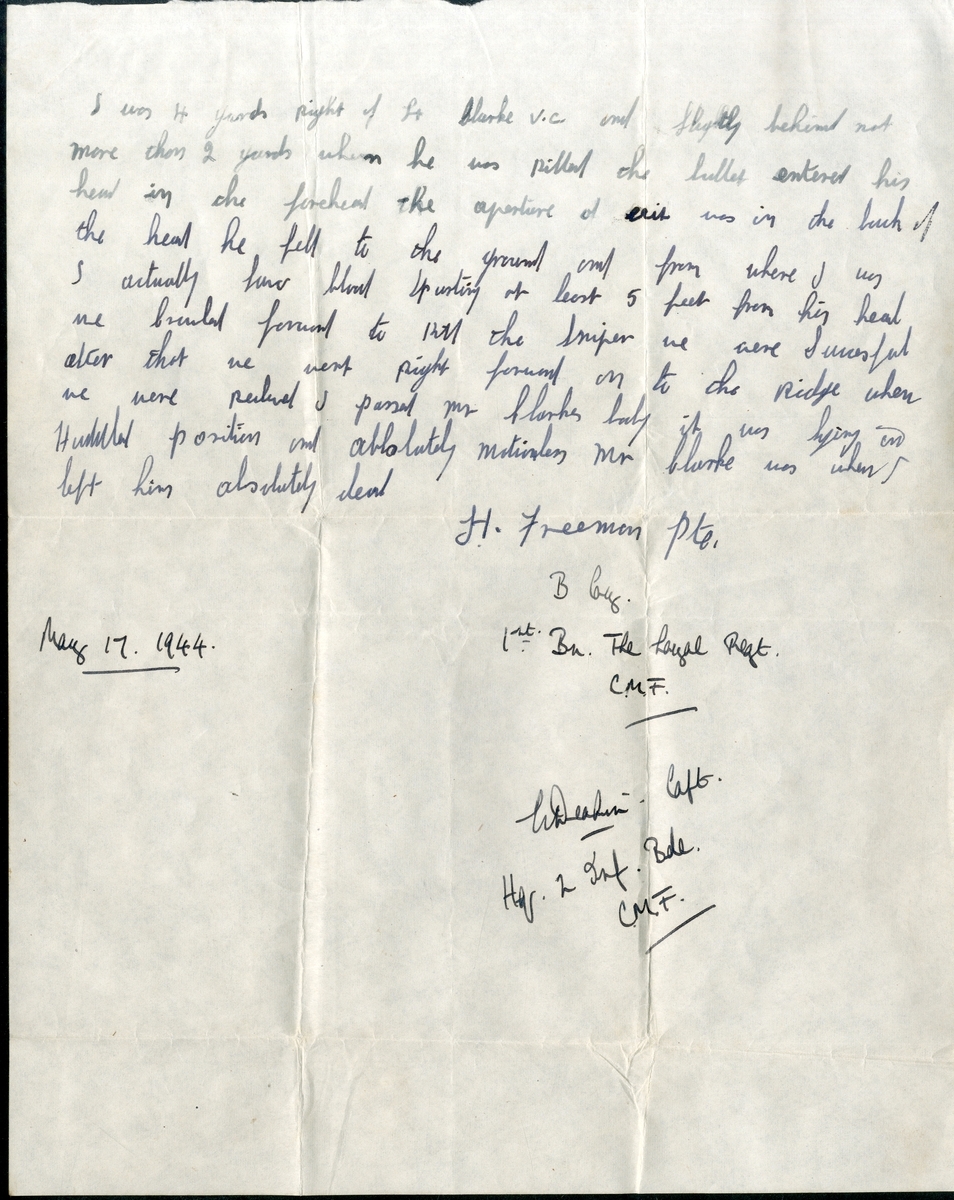 I was 4 yards right of Lt Clarke V.C. and slightly behind not
more than 2 yards when he was killed the bullet entered his
head in the forehead the aperture of exit was in the back of
the head he fell to the ground and from where I was
I actually saw blood spurting at least 5 feet from his head
we crawled forward to kill the sniper we were Sucesful
after that we went right forward on to the ridge when
we were relived I passed Mr Clarkes body it was lying in
Huddled position and abbsolutely motionless Mr Clarke was when I
left him absolutely dead
H. Freeman Pte.
B Coy.
May 17. 1944.
1st. Bn. The Loyal Regt.
C.M.F.
Deakin. Capt.
Hq. 2 Inf. Bde.
C.M.F.